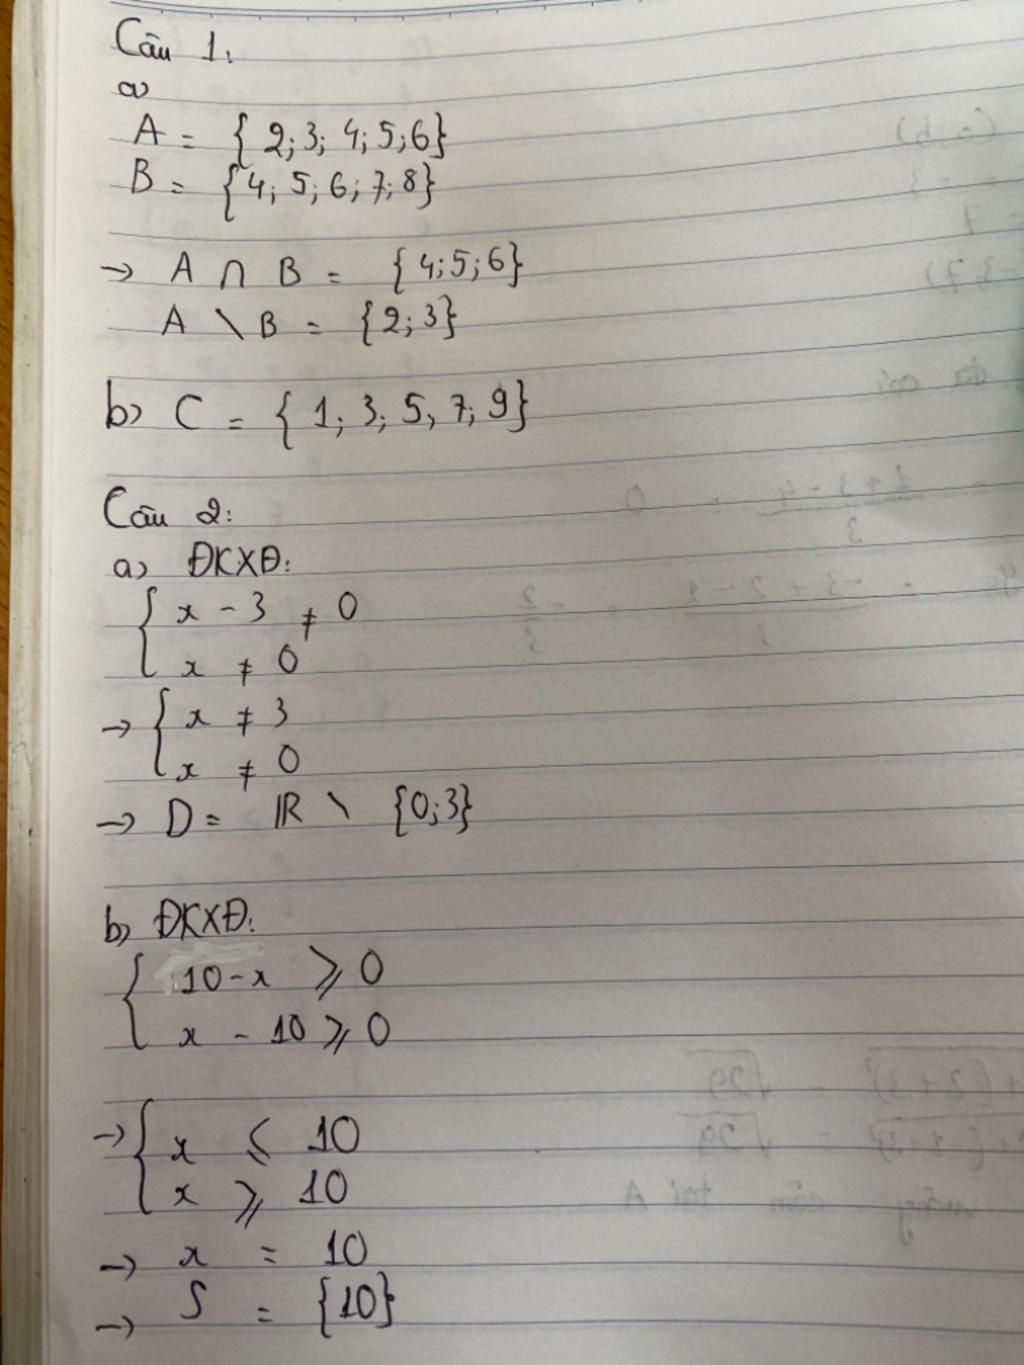 Câu 1:
a)
A = { 2; 3; 4; 5; 6}
B = {4; 5; 6; 7; 8}
→ A ∩ B = {4; 5; 6}
A \ B = {2; 3}
b) C = { 1; 3; 5, 7; 9}
Câu 2:
a) ĐKXĐ:
{ x - 3 ≠ 0
x ≠ 0
→ { x ≠ 3
x ≠ 0
→ D = ℝ \ {0; 3}
b) ĐKXĐ:
{ 10 - x ⩾ 0
x - 10 ⩾ 0
→ { x ⩽ 10
x ⩾ 10
→ x = 10
→ S = {10}